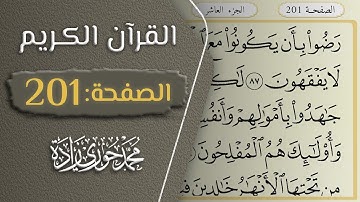 القرآن الكريم
الصفحة: 201
محمد حوري زادة
الصفحة 201
الجزء العاشر
رَضُوا۟ بِأَن يَكُونُوا۟ مَعَ
لَا يَفْقَهُونَ ٨٧ لَٰكِ
جَٰهَدُوا۟ بِأَمْوَٰلِهِمْ وَأَنفُسِ
وَأُو۟لَٰٓئِكَ هُمُ ٱلْمُفْلِحُونَ
مِن تَحْتِهَا ٱلْأَنْهَٰرُ خَٰلِدِينَ فِ